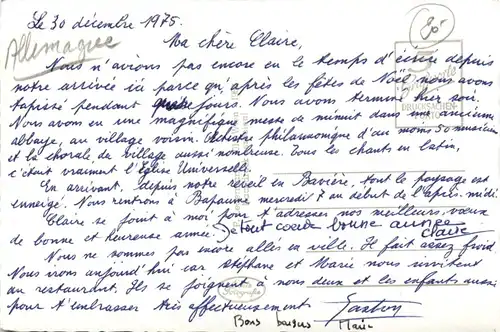 Le 30 décembre 1975.
80
Allemagne
Ma chère Claire,
Nous n'avions pas encore eu le temps d'écrire depuis
notre arrivée ici parce qu'après les fêtes de Noël nous avons
tapissé pendant quatre jours. Nous avons terminé hier soir.
Nous avons eu une magnifique messe de minuit dans une ancienne
abbaye, au village voisin. Orchestre philarmonique d'au moins 50 musiciens
et la chorale de village aussi nombreuse. Tous les chants en latin,
c'était vraiment l'Eglise Universelle.
En arrivant, depuis notre réveil en Bavière, tout le paysage est
enneigé. Nous rentrons à Bapaume mercredi 7 au début de l'après-midi
Claire se joint à moi pour t'adresser nos meilleurs vœux
de bonne et heureuse année. De tout cœur bonne année
Claire
Nous ne sommes pas encore allés en ville. Il fait assez froid
Nous irons aujourd'hui car Stéphane et Marie nous invitent
au restaurant. Ils se joignent à nous deux et les enfants aussi
pour t'embrasser très affectueusement Gaston
Bons baisers Marie